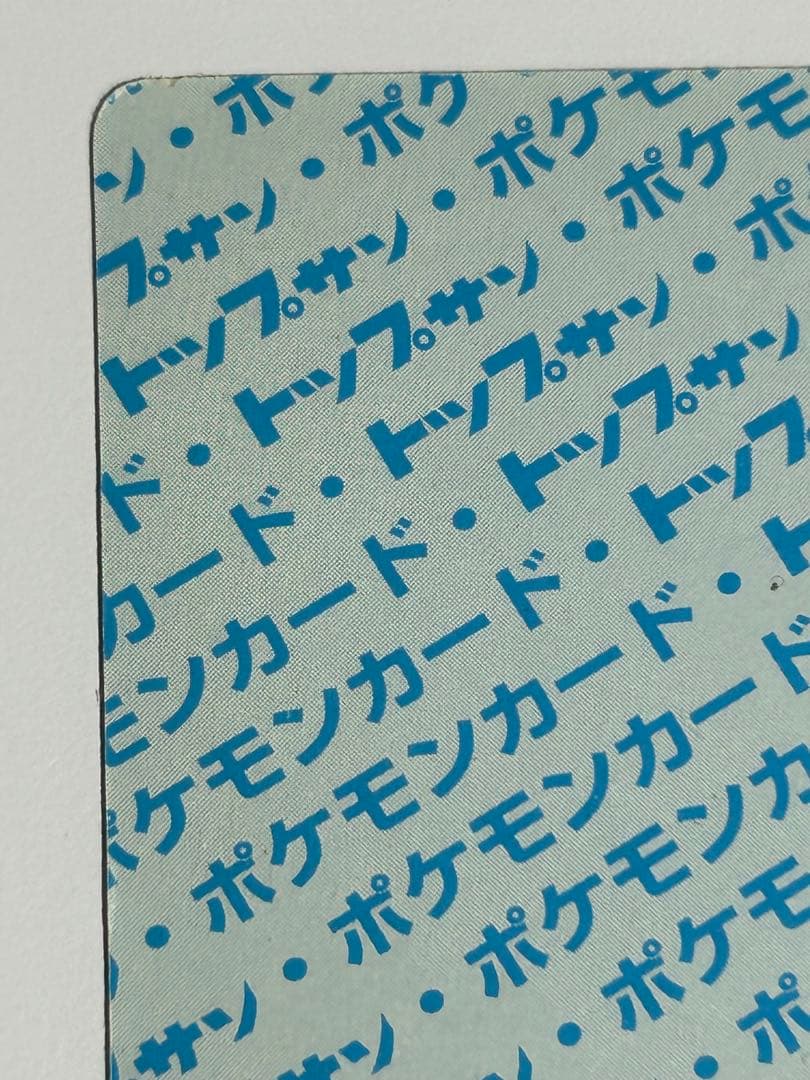 ン・ポ
プサン・ポケ
トップサン・ポケモ
ド・トップサン・ポケモ
カード・トップサン・ポ
モンカード・トップサン
ポケモンカード・トップ
・ポケモンカード・ト
サン・ポケモンカード
サン・ポケモンカ
ン・ポケモ
・ポ